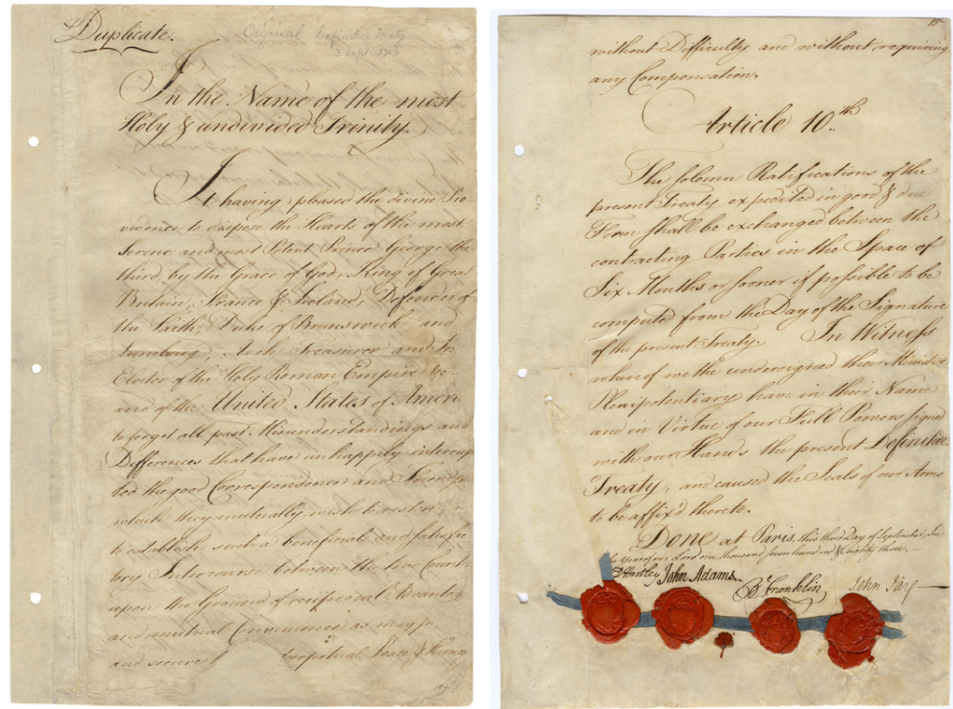 Duplicate.
Original Definitive Treaty
3 Sept. 1783
In the Name of the most
Holy & undivided Trinity.
It having pleased the divine Pro
vidence to dispose the Hearts of the most
Serene and most Potent Prince George the
third, by the Grace of God, King of Great
Britain, France & Ireland, Defender of
the Faith, Duke of Brunswick and
Lunebourg, Arch Treasurer and Pr
Elector of the Holy Roman Empire &c.
and of the United States of Ameri
to forget all past Misunderstandings and
Differences that have unhappily interrup
ted the good Correspondence and Friends
which they mutually wish to restore;
to establish such a beneficial and satisfac
tory Intercourse between the two Count
upon the Ground of reciprocal Advantag
and mutual Convenience as may p
and secure perpetual Peace & Harmon
15
without Difficulty and without requiring
any Compensation.
Article 10.th
The solemn Ratifications of the
present Treaty expedited in good & due
Form shall be exchanged between the
contracting Parties in the Space of
Six Months or sooner if possible to be
computed from the Day of the Signature
of the present Treaty. In Witness
whereof we the undersigned their Ministers
Plenipotentiary have in their Name
and in Virtue of our Full Powers signed
with our Hands the present Definitive
Treaty, and caused the Seals of our Arms
to be affix'd thereto.
Done at Paris, this third Day of September, In
the Year of our Lord one thousand seven hundred & eighty three.
D Hartley John Adams.
B Franklin
John Jay